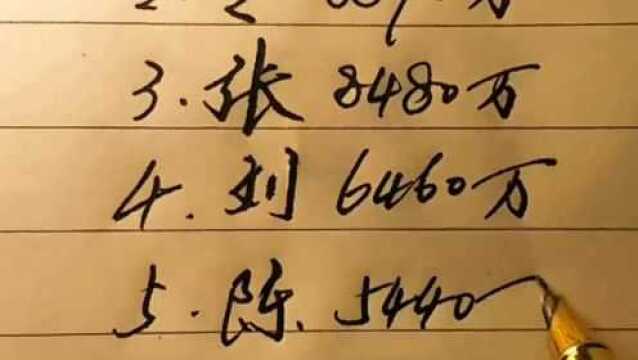 3.张 8480万
4.刘 6460万
5.陈 5440